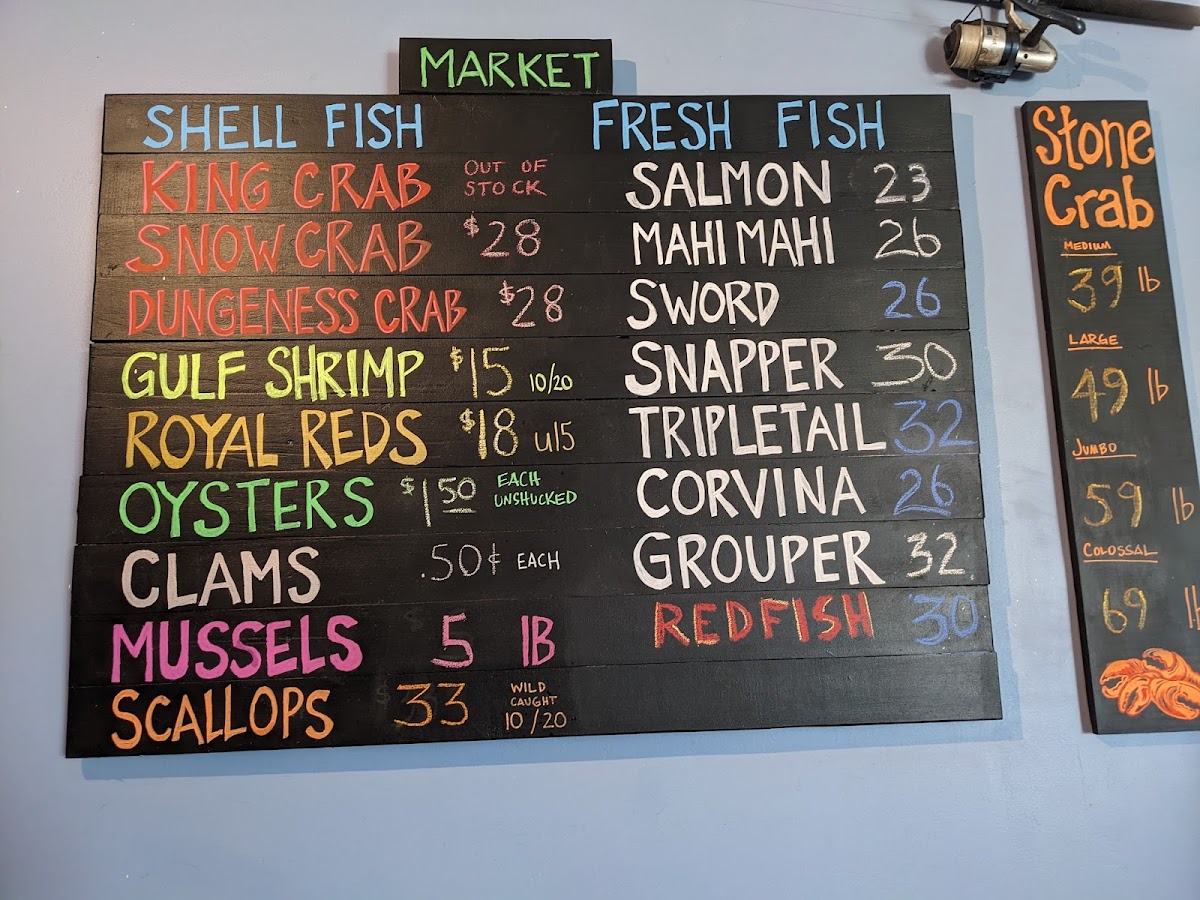 MARKET
SHELL FISH
KING CRAB OUT OF STOCK
SNOW CRAB $28
DUNGENESS CRAB $28
GULF SHRIMP $15 10/20
ROYAL REDS $18 U15
OYSTERS $1 50 EACH UNSHUCKED
CLAMS .50¢ EACH
MUSSELS 5 lB
SCALLOPS 33 WILD CAUGHT 10/20
FRESH FISH
SALMON 23
MAHI MAHI 26
SWORD 26
SNAPPER 30
TRIPLETAIL 32
CORVINA 26
GROUPER 32
REDFISH 30
Stone
Crab
MEDIUM
39 lb
LARGE
49 lb
JUMBO
59 lb
COLOSSAL
69 lb